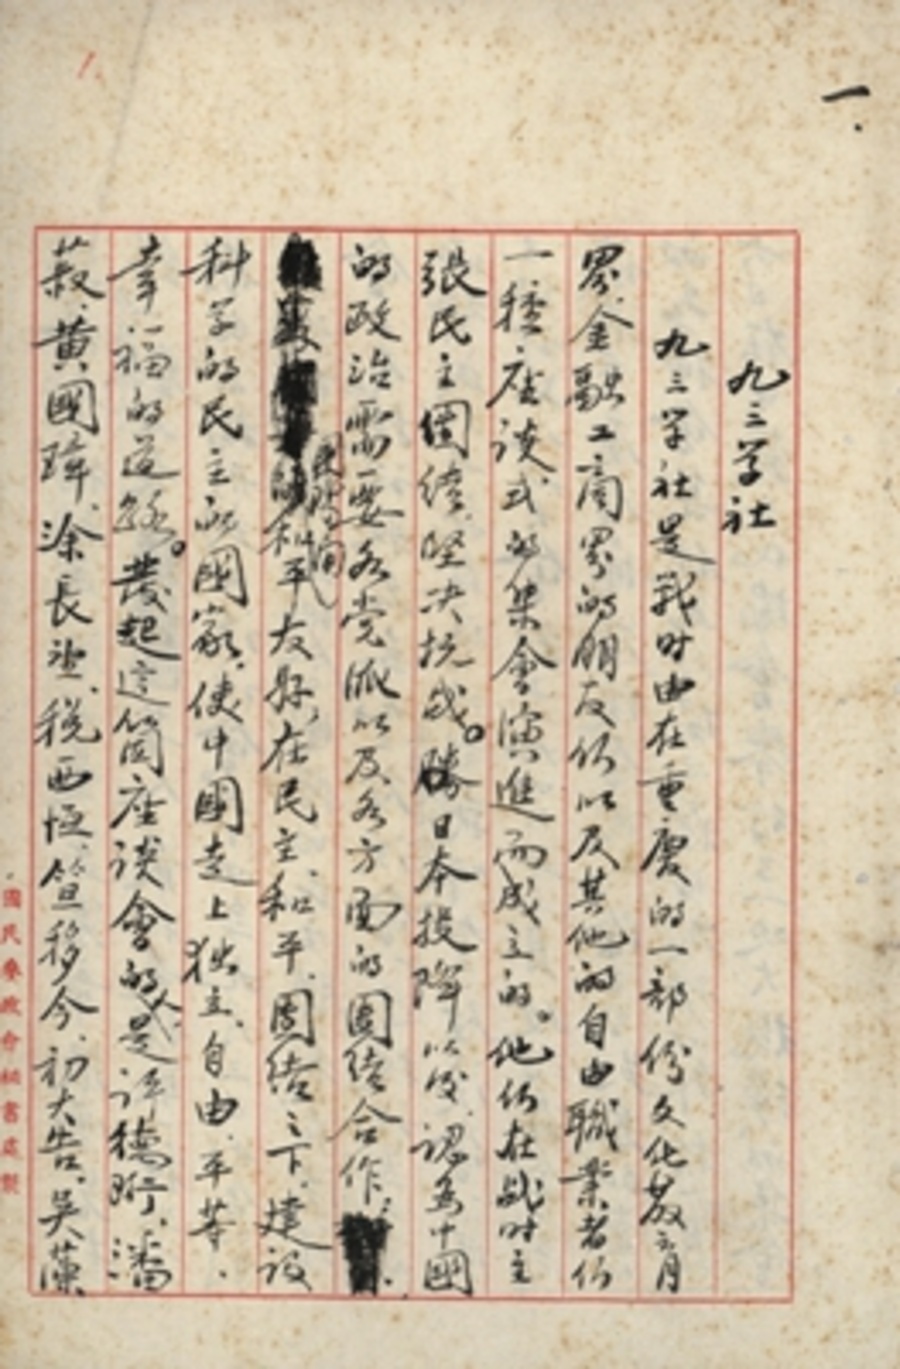 一.
1.
九三学社
九三学社是战时由在重慶的一部份文化教育
界、金融工商界的朋友们以及其他的自由職業者们
一種座谈式的集會演進而成立的。他们在战时主
張民主團结、坚决抗战。勝日本投降以後、認為中國
的政治需要各党派以及各方面的團结合作、
和平友好、在民主、和平、團结之下、建设
科学的民主的國家、使中國走上独立、自由、平等、
幸福的道路。發起這箇座谈會的人是许德珩、潘
菽、黄國璋、涂長望、税西恒、笪移今、初大告、吴藻
國民參政会秘書處製